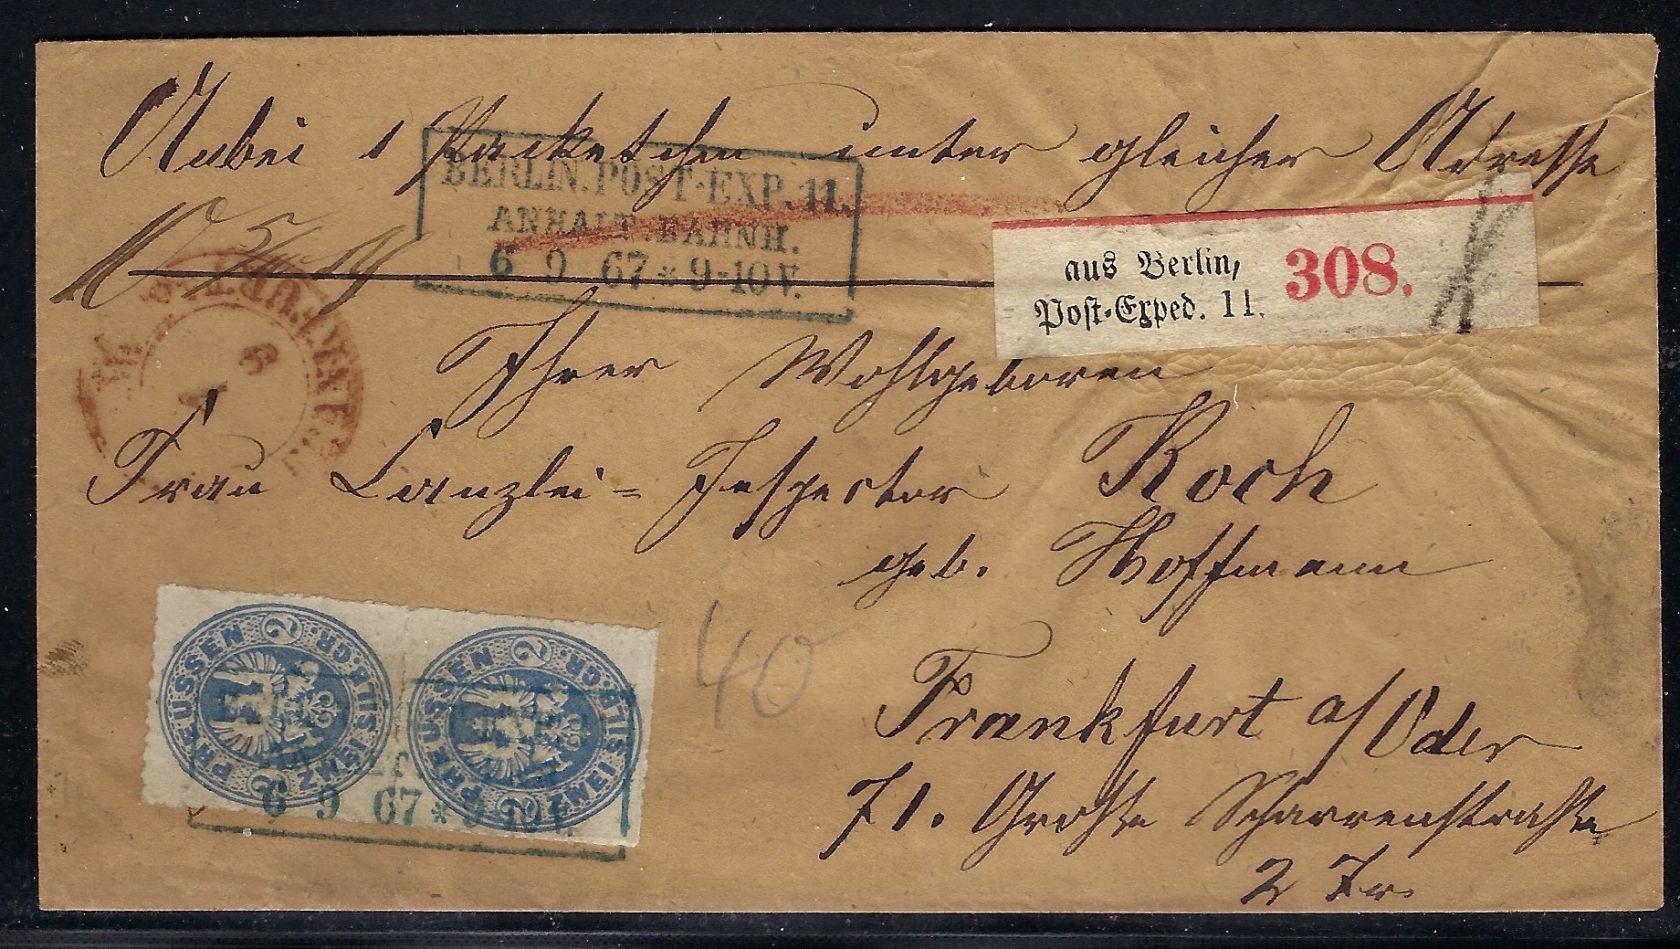 Anbei 1 Packetchen unter gleicher Adresse
BERLIN.POST-EXP.11.
ANHALT.BAHNH.
6 9 67 * 9-10 V.
aus Berlin,
Post-Exped. 11.
308.
6
Ihrer Wohlgeboren
Frau Canzlei-Inspector Koch
geb. Hoffmann
PREUSSEN 2 SILB.GR. ZWEI
PREUSSEN 2 SILB.GR. ZWEI
6 9 67 * 9-10 V.
40
Frankfurt a/Oder
71. Große Scharrenstraße
2 Tr.